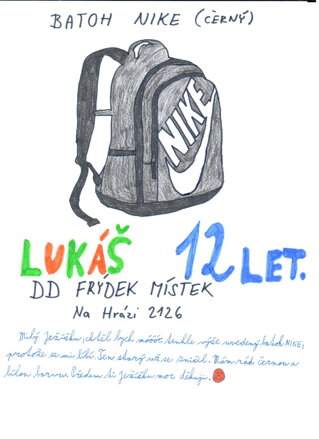 BATOH NIKE (ČERNÝ)
NIKE
LUKÁŠ 12 LET.
DD FRÝDEK MÍSTEK
Na Hrázi 2126
Milý Ježíšku, chtěl bych móóóc tenhle výše uvedený batoh NIKE,
protože se mi líbí. Ten starý už se zničil. Mám rád černou a
bílou barvu. Předem ti Ježíšku moc děkuji.